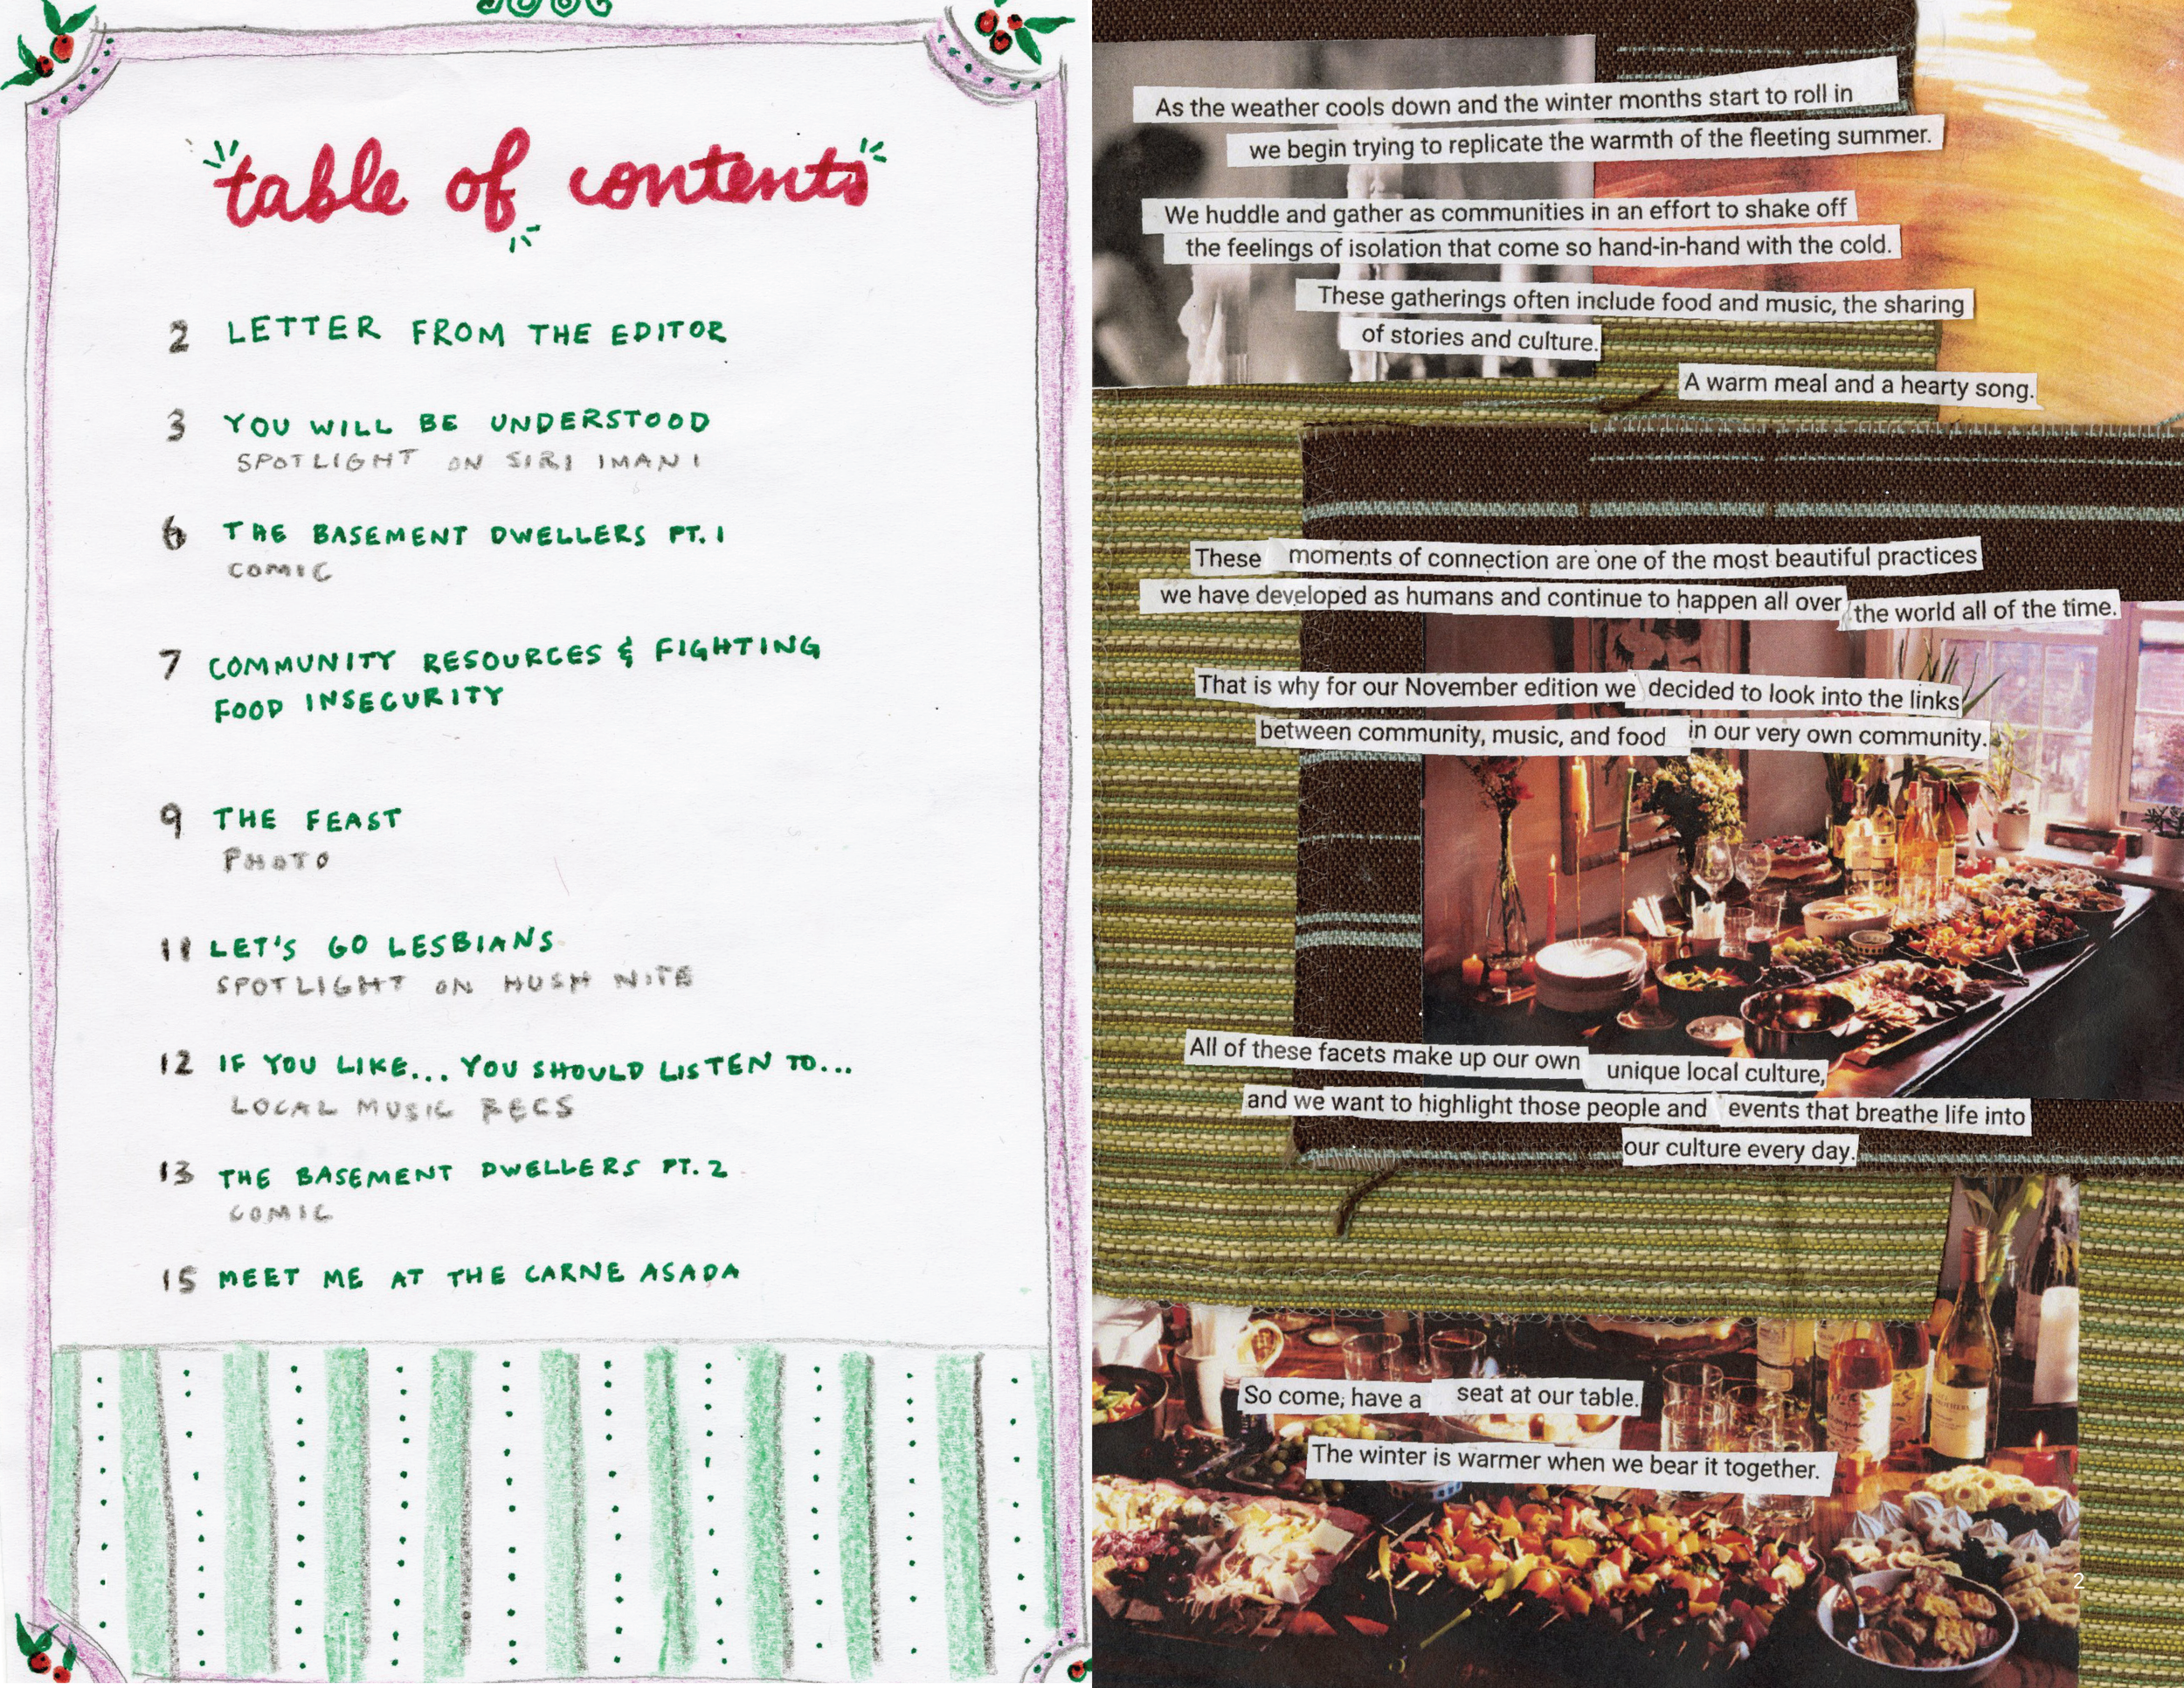 table of contents
2 LETTER FROM THE EDITOR
3 YOU WILL BE UNDERSTOOD
SPOTLIGHT ON SIRI IMANI
6 THE BASEMENT DWELLERS PT. 1
COMIC
7 COMMUNITY RESOURCES & FIGHTING
FOOD INSECURITY
9 THE FEAST
PHOTO
11 LET'S GO LESBIANS
SPOTLIGHT ON HUSH NITE
12 IF YOU LIKE... YOU SHOULD LISTEN TO...
LOCAL MUSIC RECS
13 THE BASEMENT DWELLERS PT. 2
COMIC
15 MEET ME AT THE CARNE ASADA
As the weather cools down and the winter months start to roll in
we begin trying to replicate the warmth of the fleeting summer.
We huddle and gather as communities in an effort to shake off
the feelings of isolation that come so hand-in-hand with the cold.
These gatherings often include food and music, the sharing
of stories and culture.
A warm meal and a hearty song.
These moments of connection are one of the most beautiful practices
we have developed as humans and continue to happen all over the world all of the time.
That is why for our November edition we decided to look into the links
between community, music, and food in our very own community.
All of these facets make up our own unique local culture,
and we want to highlight those people and events that breathe life into
our culture every day.
So come; have a seat at our table.
The winter is warmer when we bear it together.
2